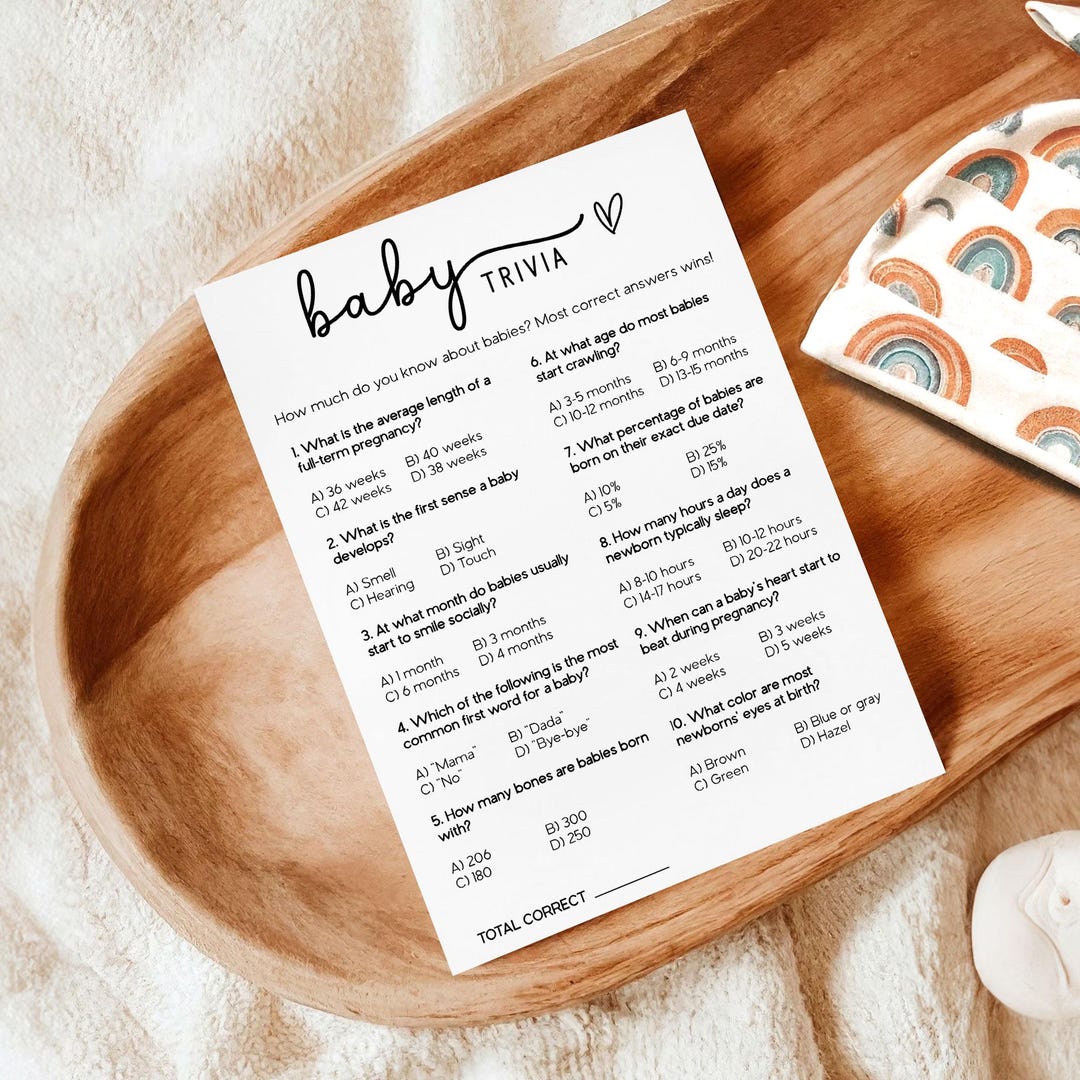 baby TRIVIA
How much do you know about babies? Most correct answers wins!
1. What is the average length of a
full-term pregnancy?
A) 36 weeks B) 40 weeks
C) 42 weeks D) 38 weeks
2. What is the first sense a baby
develops?
A) Smell B) Sight
C) Hearing D) Touch
3. At what month do babies usually
start to smile socially?
A) 1 month B) 3 months
C) 6 months D) 4 months
4. Which of the following is the most
common first word for a baby?
A) "Mama" B) "Dada"
C) "No" D) "Bye-bye"
5. How many bones are babies born
with?
A) 206 B) 300
C) 180 D) 250
6. At what age do most babies
start crawling?
A) 3-5 months B) 6-9 months
C) 10-12 months D) 13-15 months
7. What percentage of babies are
born on their exact due date?
A) 10% B) 25%
C) 5% D) 15%
8. How many hours a day does a
newborn typically sleep?
A) 8-10 hours B) 10-12 hours
C) 14-17 hours D) 20-22 hours
9. When can a baby's heart start to
beat during pregnancy?
A) 2 weeks B) 3 weeks
C) 4 weeks D) 5 weeks
10. What color are most
newborns' eyes at birth?
A) Brown B) Blue or gray
C) Green D) Hazel
TOTAL CORRECT